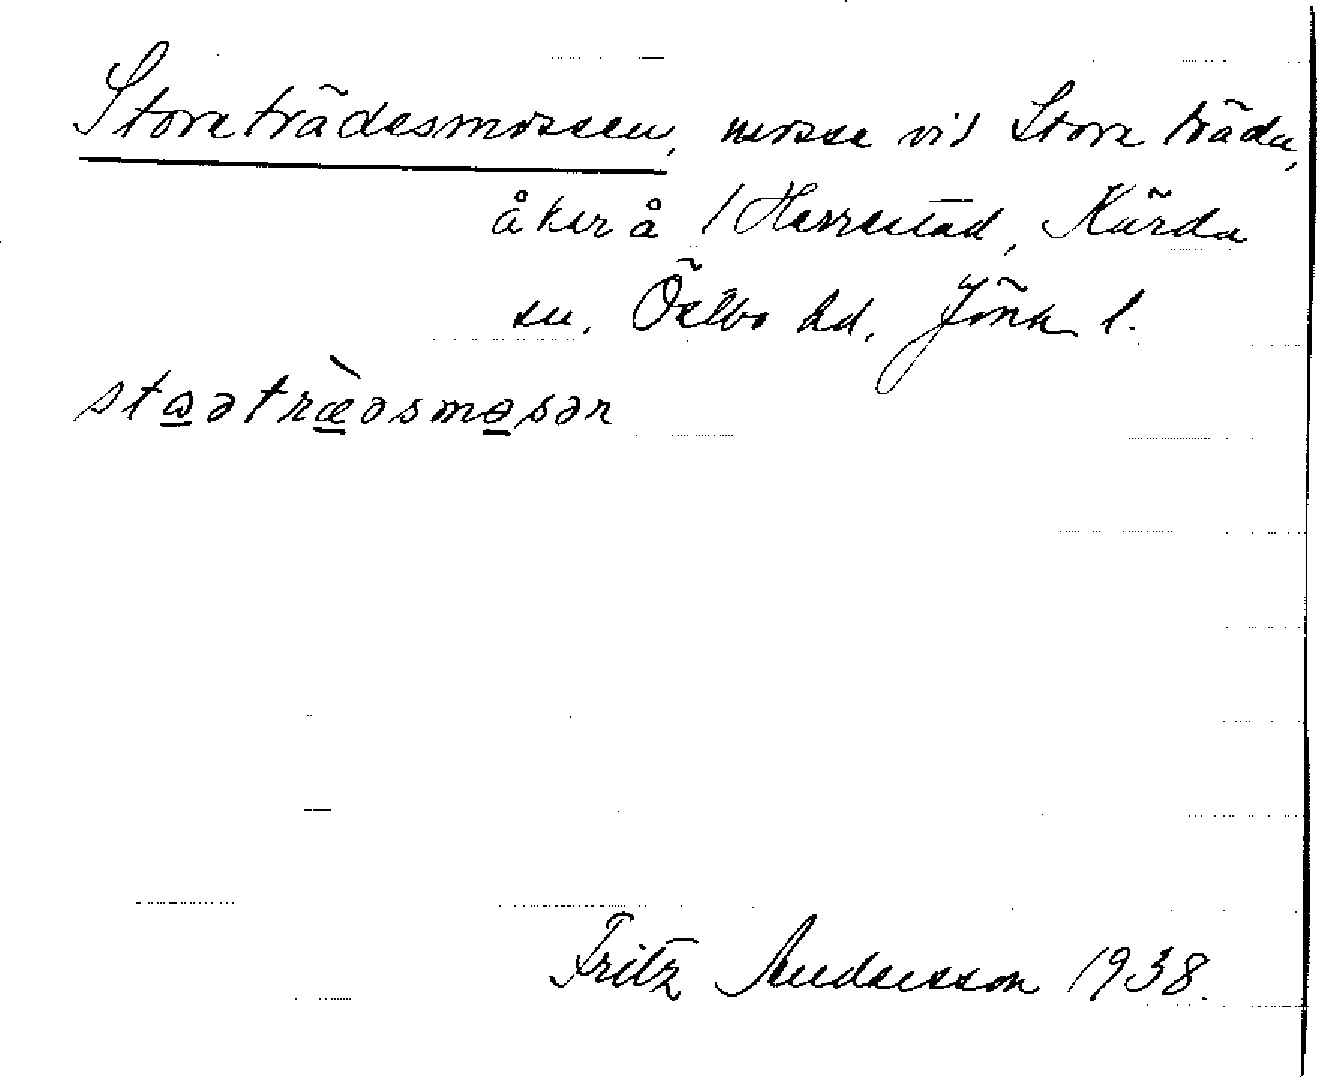 Storeträdesmossen, mosse vid Store träde,
åker å /Herrestad, Kärda
sn. Östbo hd. Jönk l.
staɘtræ̀əsmɵsən
Fritz Andersson 1938.